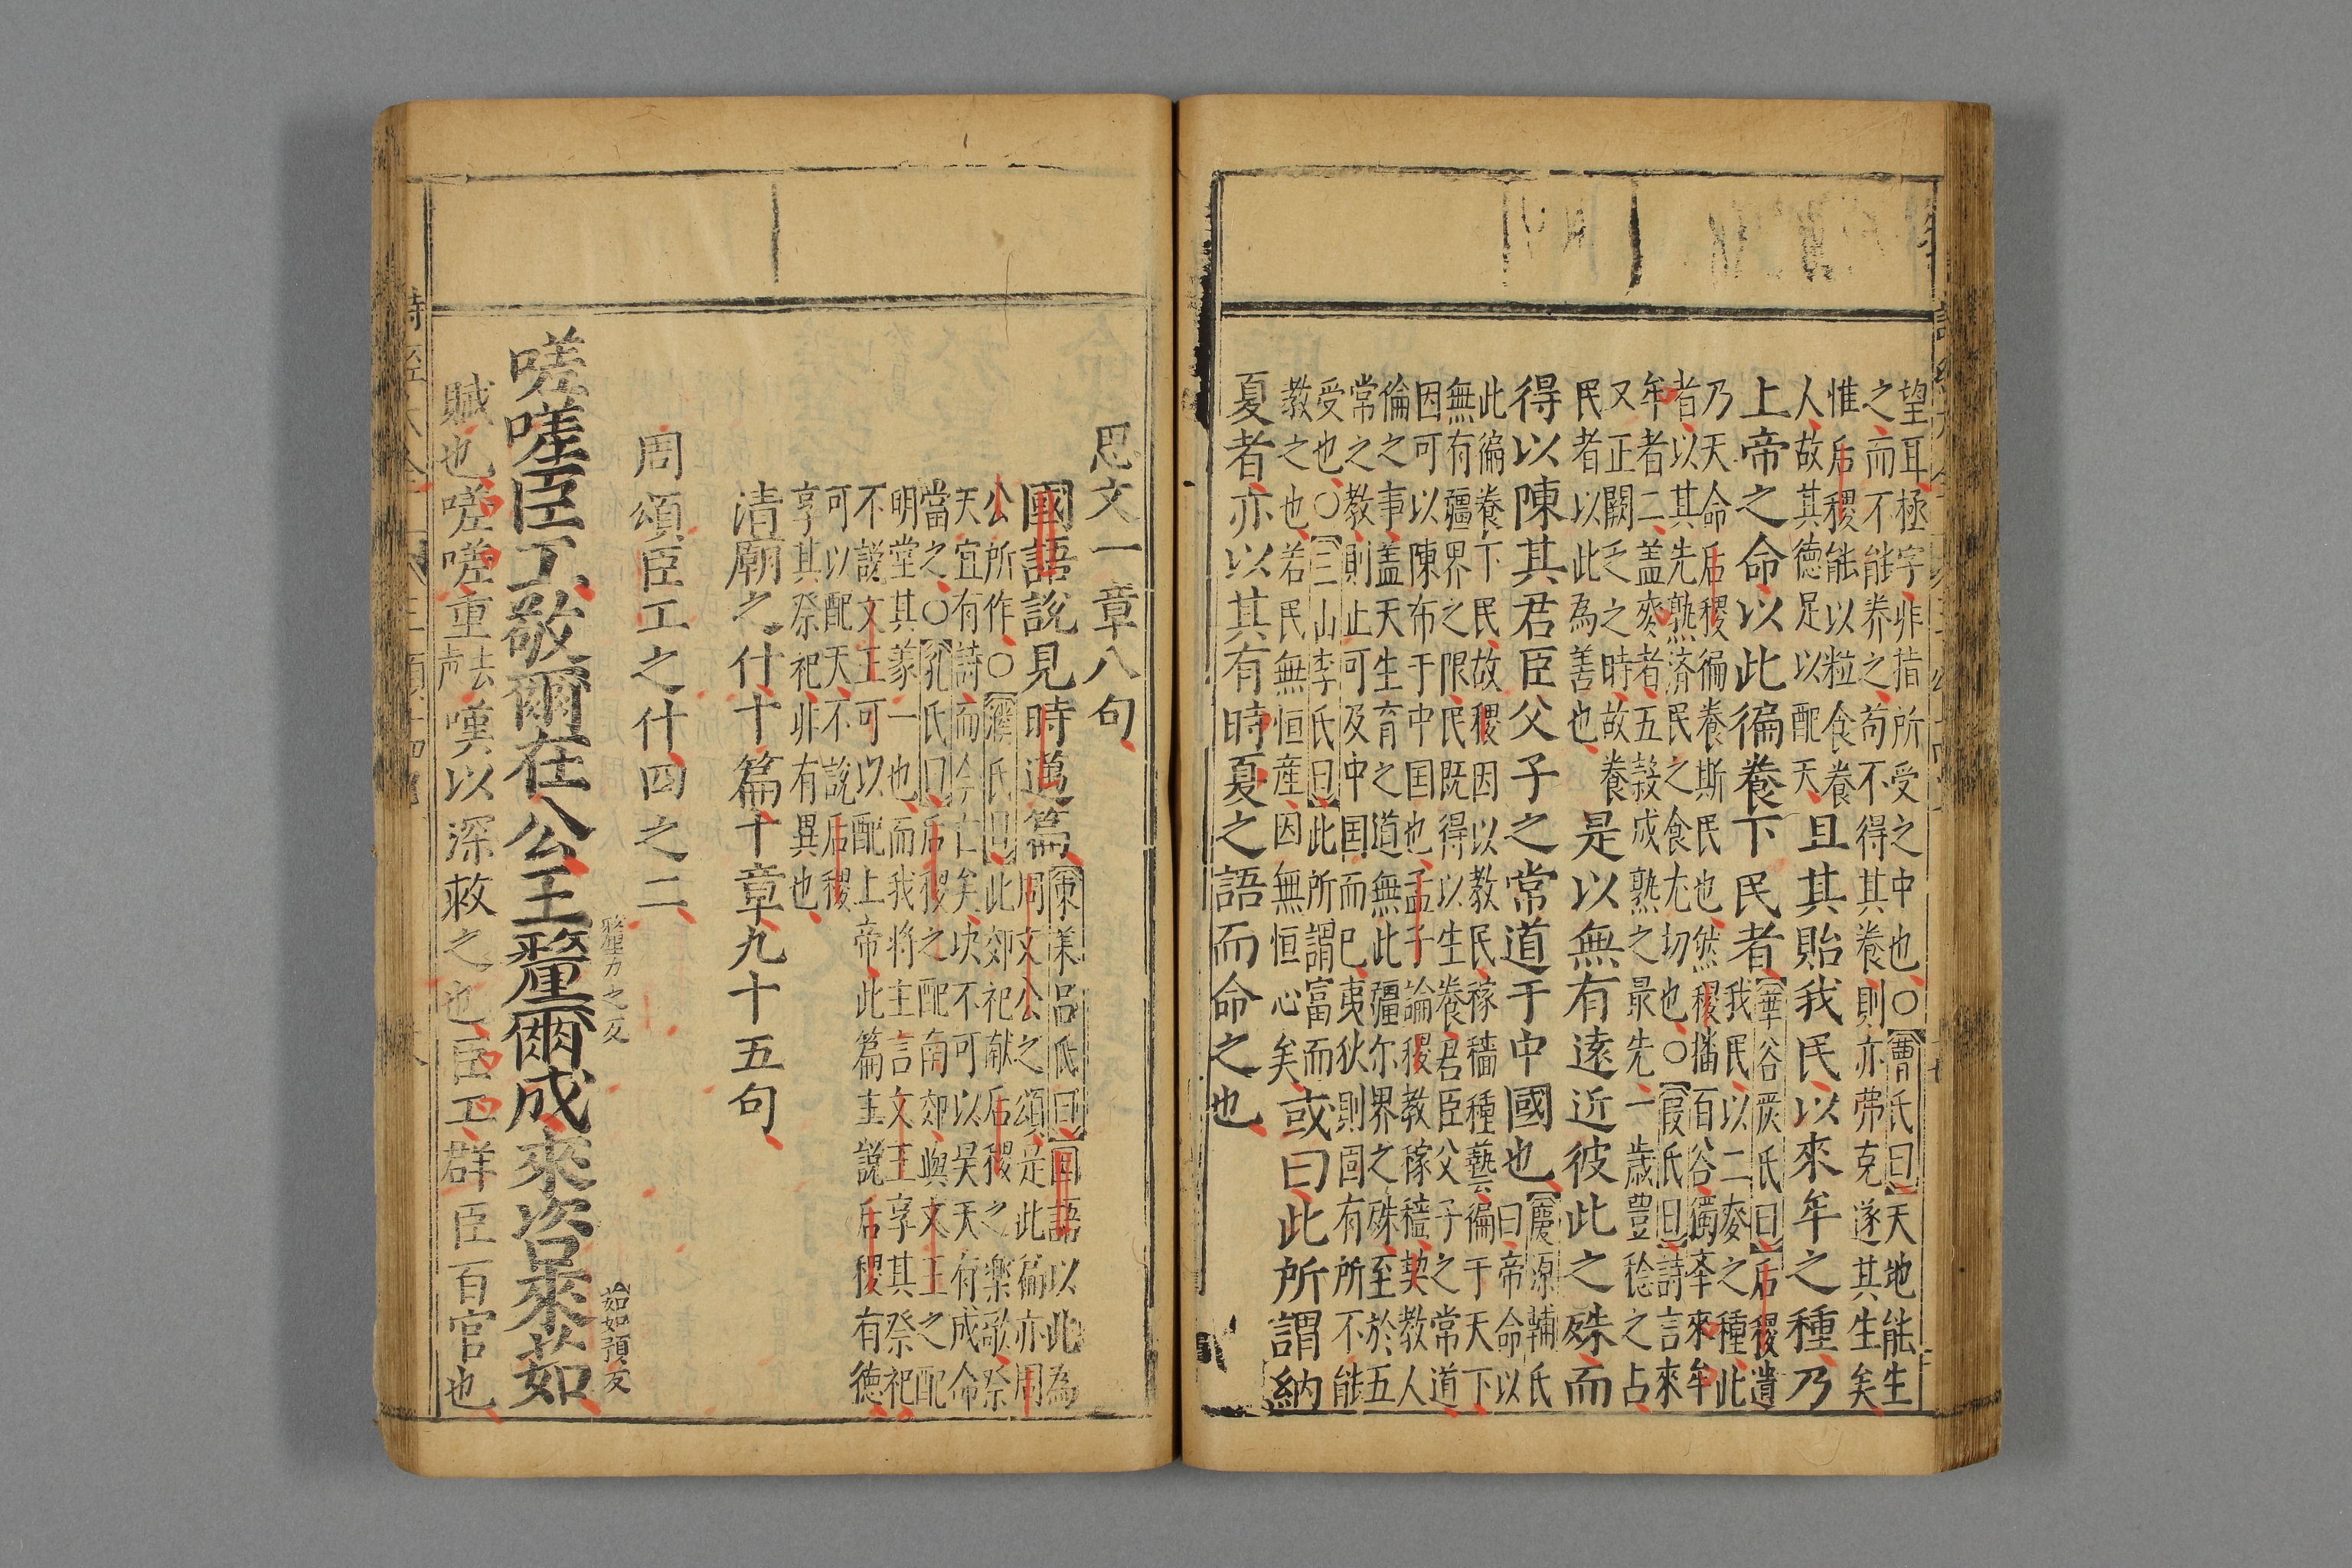 望耳極字非指所受之中也○曹氏曰天地能生
之而不能養之苟不得其養則亦弗克遂其生矣
惟后稷能以粒食養
人故其德足以配天且其貽我民以來牟之種乃
上帝之命以此徧養下民者
華谷嚴氏曰后稷遺
我民以二麥之種此
乃天命后稷徧養斯民也然稷播百谷獨舉來牟
者以其先熟濟民之食尤切也○叚氏曰詩言來
牟者二盖麥者五糓成熟之最先一歲豐稔之占
又正闕乏之時故養
民者以此為善也
是以無有遠近彼此之殊而
得以陳其君臣父子之常道于中國也
慶源輔氏
曰帝命以
此徧養下民故稷因以教民稼穡種藝徧于天下
無有疆界之限民既得以生養君臣父子之常道
因可以陳布于中国也孟子論稷教稼穡契教人
倫之事盖天生育之道無此疆尔界之殊至於五
常之教則止可及中国而已夷狄則固有所不能
受也○三山李氏曰此所謂富而
教之也若民無恒産因無恒心矣
或曰此所謂納
夏者亦以其有時夏之語而命之也
思文一章八句
國語說見時邁篇
東萊呂氏曰国語以此為
周文公之頌是此篇亦周
公所作○濮氏曰此郊祀献后稷之樂歌祭
天宜有詩而今亡矣决不可以昊天有成命
當之○孔氏曰后稷之配南郊與文王之配
明堂其義一也而我将主言文王享其祭祀
不說文王可以配上帝此篇主說后稷有德
可以配天不說后稷
享其祭祀非有異也
清廟之什十篇十章九十五句
周頌臣工之什四之二
嗟嗟臣工敬爾在公王釐爾成來咨來茹
釐力之反
茹如預反
賦也嗟嗟重去声嘆以深敕之也臣工群臣百官也